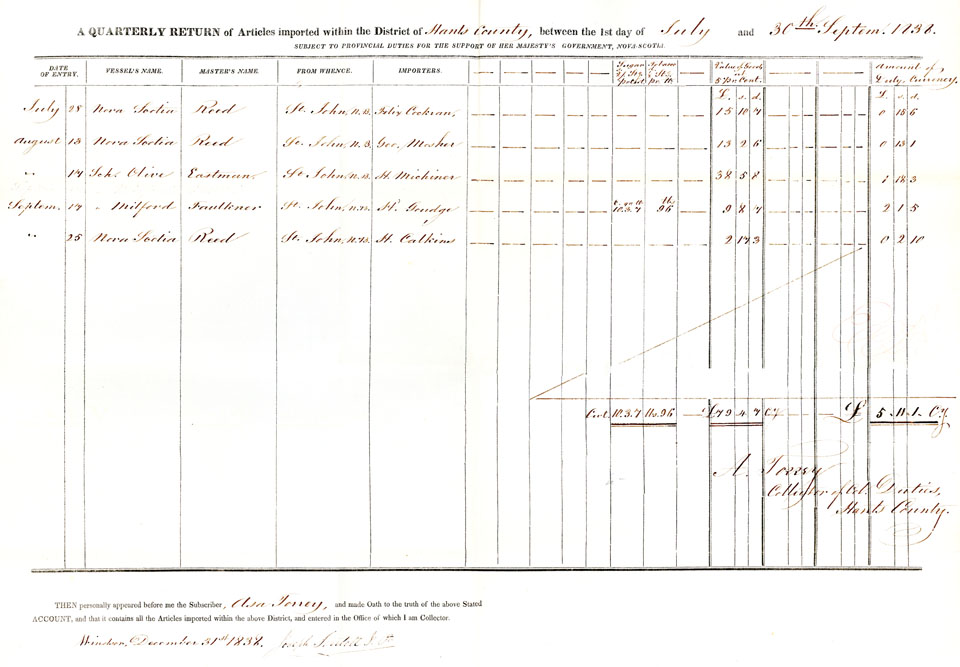 A QUARTERLY RETURN of Articles imported within the District of Hants County, between the 1st day of July and 30th Septemr 1838.
SUBJECT TO PROVINCIAL DUTIES FOR THE SUPPORT OF HER MAJESTY'S GOVERNMENT, NOVA-SCOTIA.
DATE OF ENTRY. VESSEL'S NAME. MASTER'S NAME. FROM WHENCE. IMPORTERS. Sugar Value of Goods 5 Pr Cent. Amount of Duty, Currency.
£. s. d. £. s. d.
July 28 Nova Scotia Reed St. John, N.B. Felix Cochran, 15 10 7 0 15 6
August 13 Nova Scotia Reed St. John, N.B. Geo. Mosher 13 2 6 0 13 1
" 17 Sch. Olive Eastman, St. John, N.B. H. Michiner 38 5 8 1 18 3
Septem. 17 " Milford Faulkner St. John, N.B. H. Goudge 10.3.7 96 9 8 7 2 1 5
" 25 Nova Scotia Reed St. John, N.B. H. Calkins 2 17 3 0 2 10
Cwt. 10.3.7 lbs 96 £79 4 7 Cy £ 5 11 1 Cy.
A. Torrey
Collector of Col. Duties,
Hants County.
THEN personally appeared before me the Subscriber, Asa Torrey, and made Oath to the truth of the above Stated
ACCOUNT, and that it contains all the Articles imported within the above District, and entered in the Office of which I am Collector.
Windsor, December 31st 1838.